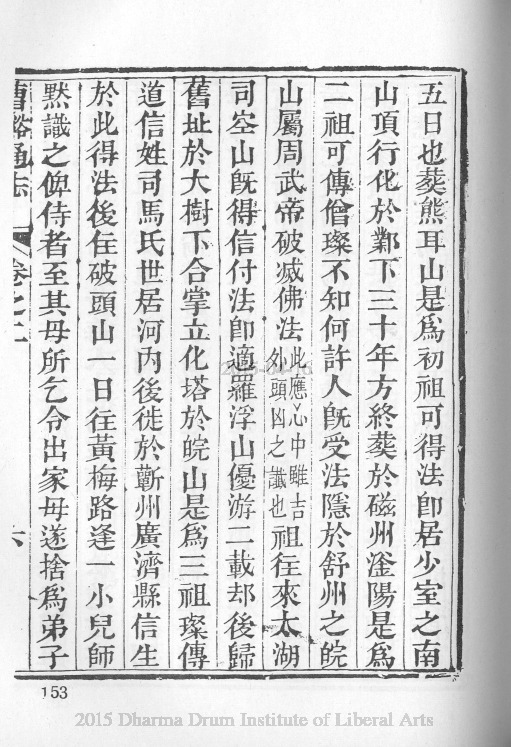 五日也葬熊耳山是爲初祖可得法卽居少室之南
山頂行化於鄴下三十年方終葬於磁州滏陽是爲
二祖可傳僧璨不知何許人旣受法隱於舒州之皖
山屬周武帝破滅佛法此應心中雖吉外頭凶之讖也祖往來太湖
司空山旣得信付法卽適羅浮山優游二載却後歸
舊址於大樹下合掌立化塔於皖山是爲三祖璨傳
道信姓司馬氏世居河內後徙於蘄州廣濟縣信生
於此得法後住破頭山一日往黃梅路逢一小兒師
默識之俾侍者至其母所乞令出家母遂捨爲弟子
曹谿通志
卷之二
六
153
2015 Dharma Drum Institute of Liberal Arts